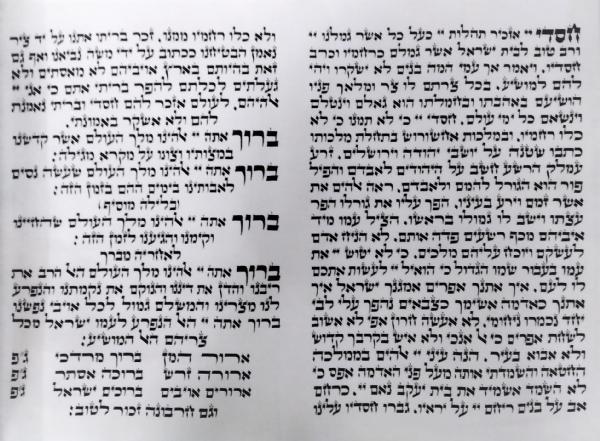 חסדי יי אזכיר תהלות יי כעל כל אשר גמלנו יי
ורב טוב לבית ישראל אשר גמלם כרחמיו וכרב
חסדיו. ויאמר אך עמי המה בנים לא ישקרו ויהי
להם למושיע. בכל צרתם לו צר ומלאך פניו
הושיעם באהבתו ובחמלתו הוא גאלם וינטלם
וינשאם כל ימי עולם. חסדי יי כי לא תמנו כי לא
כלו רחמיו. ובמלכות אחשורוש בתחלת מלכותו
כתבו שטנה על יושבי יהודה וירושלים. זרע
עמלק הרשע חשב על היהודים לאבדם והפיל
פור הוא הגורל להמם ולאבדם. ראה להים את
אשר זמם וירע בעיניו. הפך עליו את גורלו הפר
עצתו וישב לו גמולו בראשו. הציל עמו מיד
איביהם מכף רשעים פדה אותם. לא הניח אדם
לעשקם ויוכח עליהם מלכים. כי לא יטוש יי את
עמו בעבור שמו הגדול כי הואיל יי לעשות אתכם
לו לעם. איך אתנך אפרים אמגנך ישראל איך
אתנך כאדמה אשימך כצבאים נהפך עלי לבי
יחד נכמרו ניחומי. לא אעשה חרון אפי לא אשוב
לשחת אפרים כי ﭏ אנכי ולא איש בקרבך קדוש
ולא אבוא בעיר. הנה עיני יי אלהים בממלכה
החטאה והשמדתי אותה מעל פני האדמה אפס כי
לא השמד אשמיד את בית יעקב נאם יי. כרחם
אב על בנים ריחם יי על יראיו. גברו חסדיו עלינו
ולא כלו רחמיו ממנו. זכר בריתו אתנו על יד ציר
נאמן הבטיחנו ככתוב על ידי משה נביאנו ואף גם
זאת בהיותם בארץ אויביהם לא מאסתים ולא
געלתים לכלתם להפר בריתי אתם כי אני יי
אלהיהם. לעולם אזכר להם חסדי ובריתי נאמנת
להם ולא אשקר באמונתי.
ברוך אתה יי אלהינו מלך העולם אשר קדשנו
במצותיו וצונו על מקרא מגילה:
ברוך אתה יי אלהינו מלך העולם שעשה נסים
לאבותינו בימים ההם בזמן הזה:
ובלילה מוסיף:
ברוך אתה יי אלהינו מלך העולם שהחיינו
וקימנו והגיענו לזמן הזה:
לאחריה מברך
ברוך אתה יי אלהינו מלך העולם הﭏ הרב את
ריבנו והדן את דיננו והנוקם את נקמתנו והנפרע
לנו מצרינו והמשלם גמול לכל אויבי נפשנו
ברוך אתה יי הﭏ הנפרע לעמו ישראל מכל
צריהם הﭏ המושיע:
ארור המן ברוך מרדכי ג״פ
ארורה זרש ברוכה אסתר ג״פ
ארורים אויבים ברוכים ישראל ג״פ
וגם חרבונה זכור לטוב: